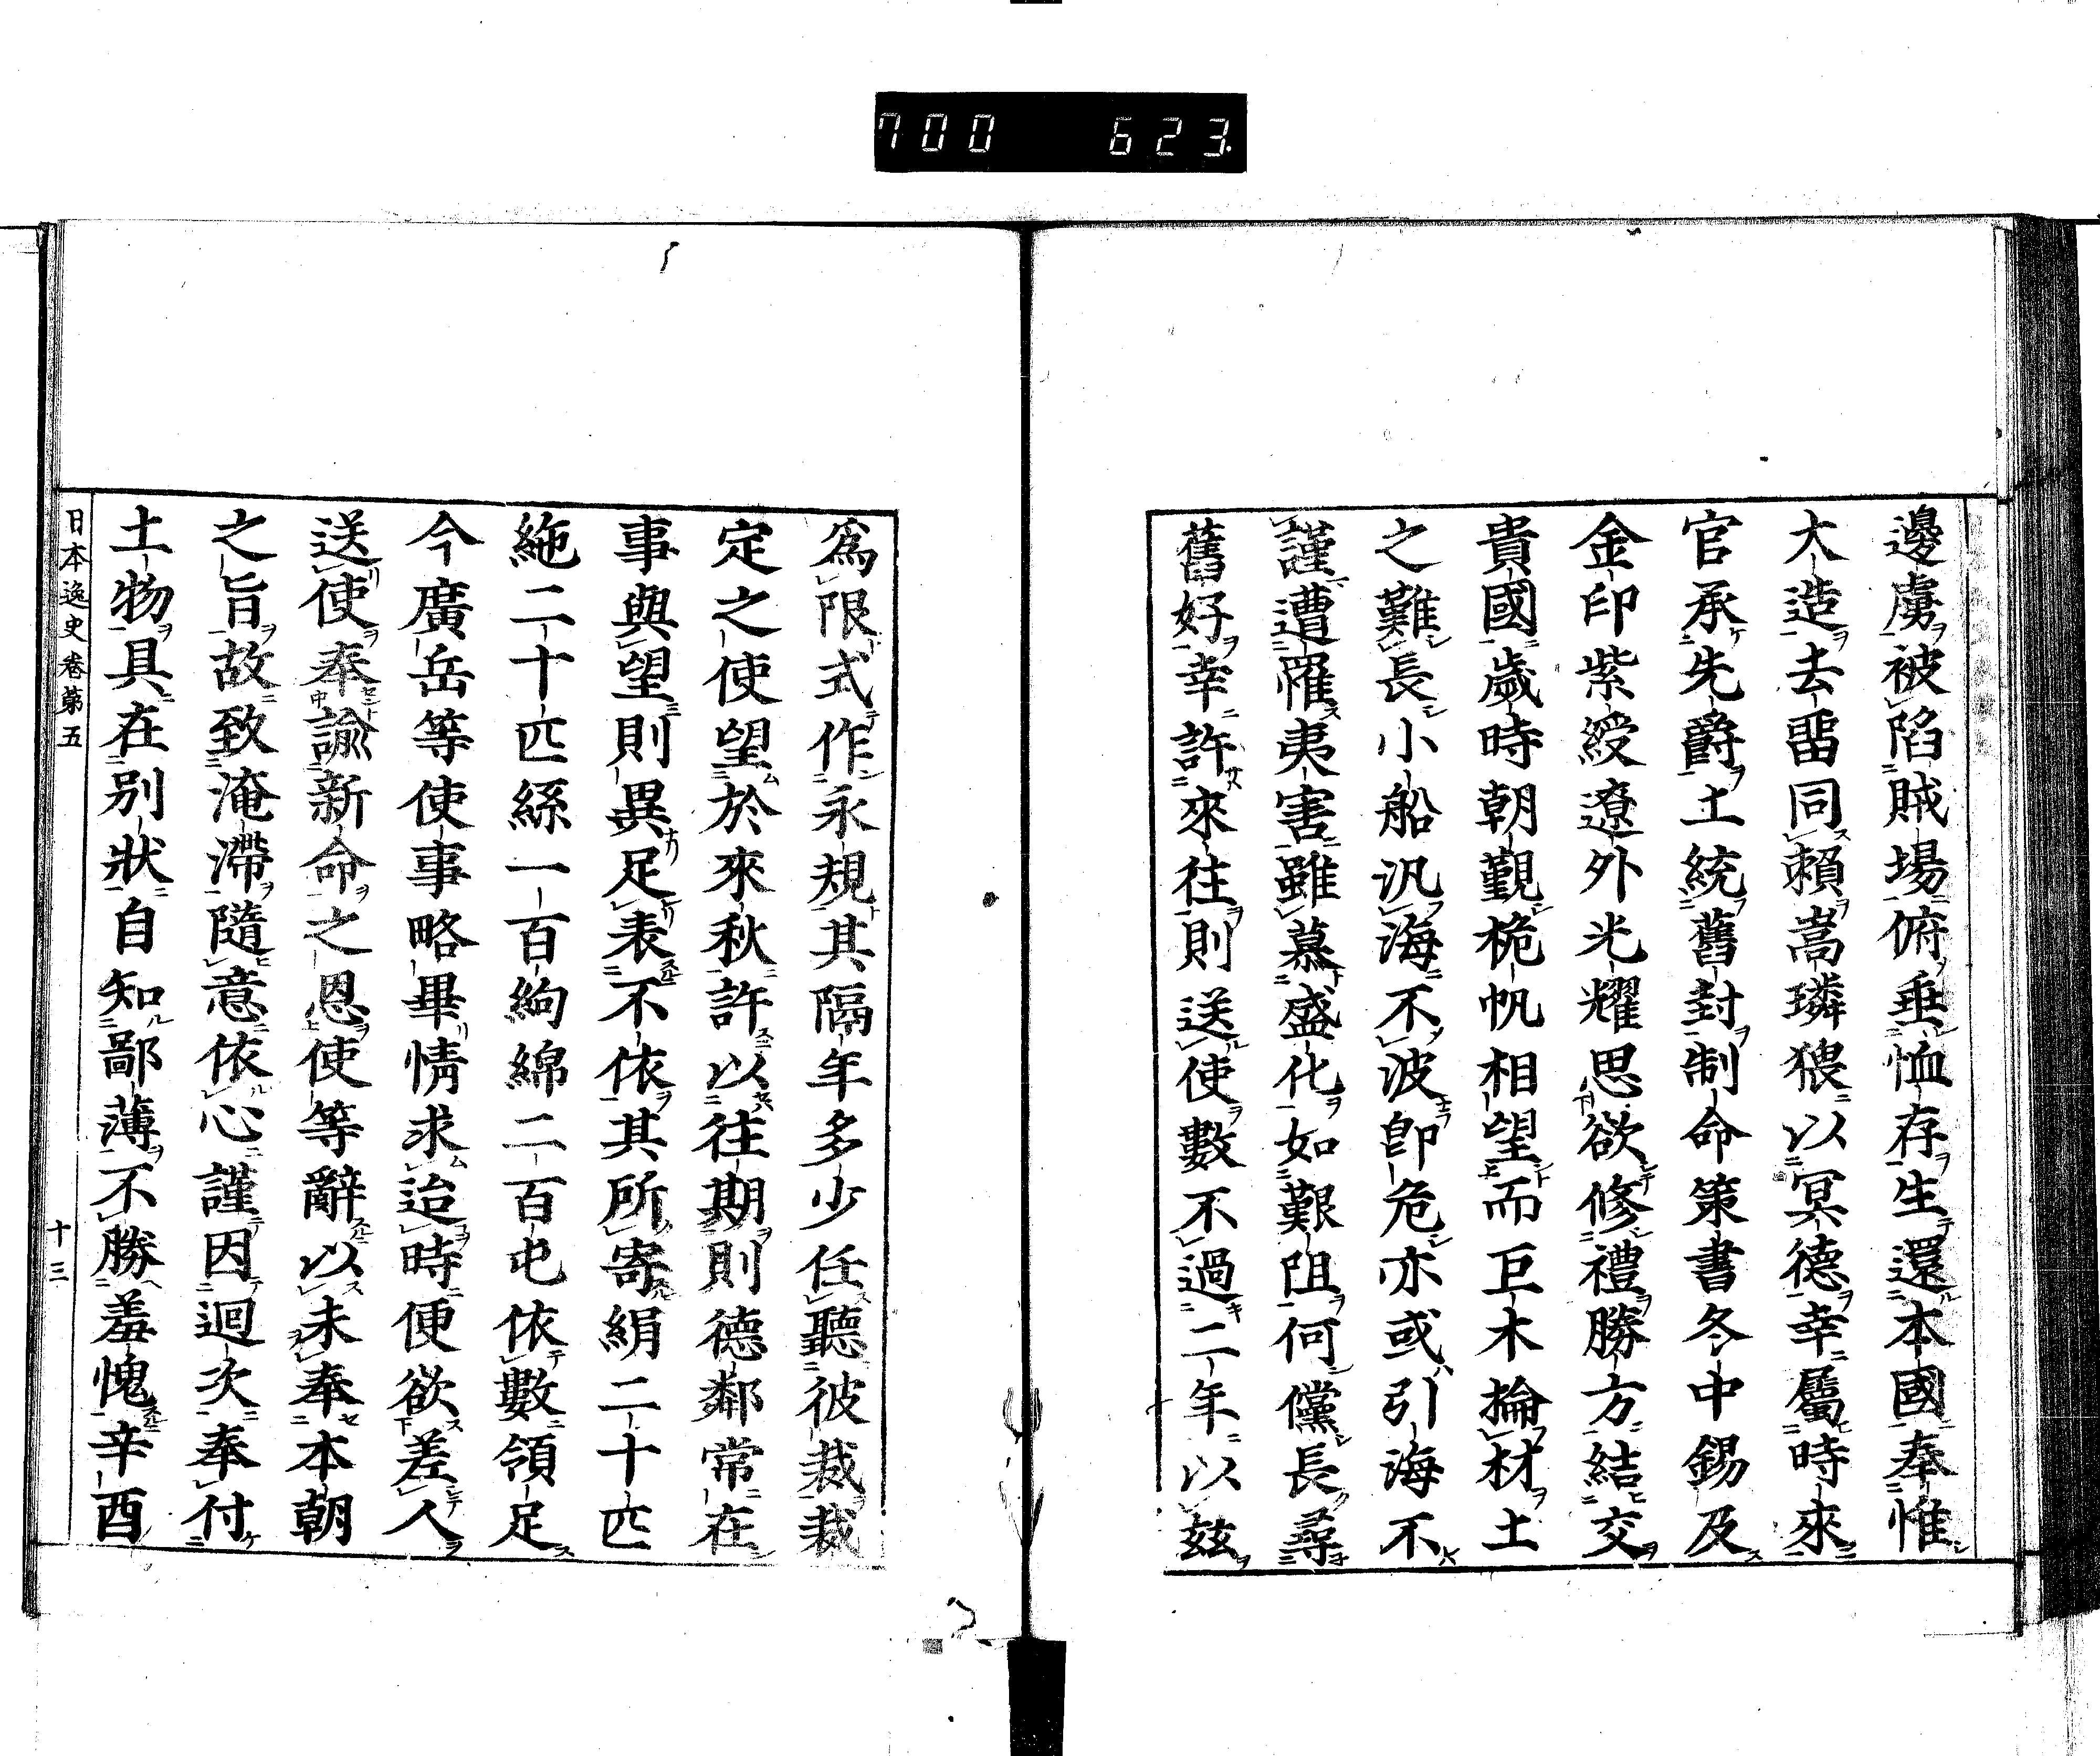 700 623
邊虜被陷賊場俯垂恤存生還本國奉惟
大造去留同賴嵩璘猥以冥德幸屬時來
官承先爵土統舊封制命策書冬中錫及
金印紫綬遼外光耀思欲修禮勝方結交
貴國歲時朝覲桅帆相望而巨木掄材土
之難長小船汎海不波即危亦或引海不
謹遭罹夷害雖慕盛化如艱阻何儻長尋
舊好幸許來往則送使數不過二年以茲
爲限式作永規其隔年多少任聽彼裁裁
定之使望於來秋許以往期則德鄰常在
事與望則異足表不依其所寄絹二十匹
絁二十匹絲一百絇綿二百屯依數領足
今廣岳等使事略畢情求迨時便欲差人
送使奉諭新命之恩使等辭以未奉本朝
之旨故致淹滯隨意依心謹因迴次奉付
土物具在別狀自知鄙薄不勝羞愧辛酉
日本逸史卷第五 十三